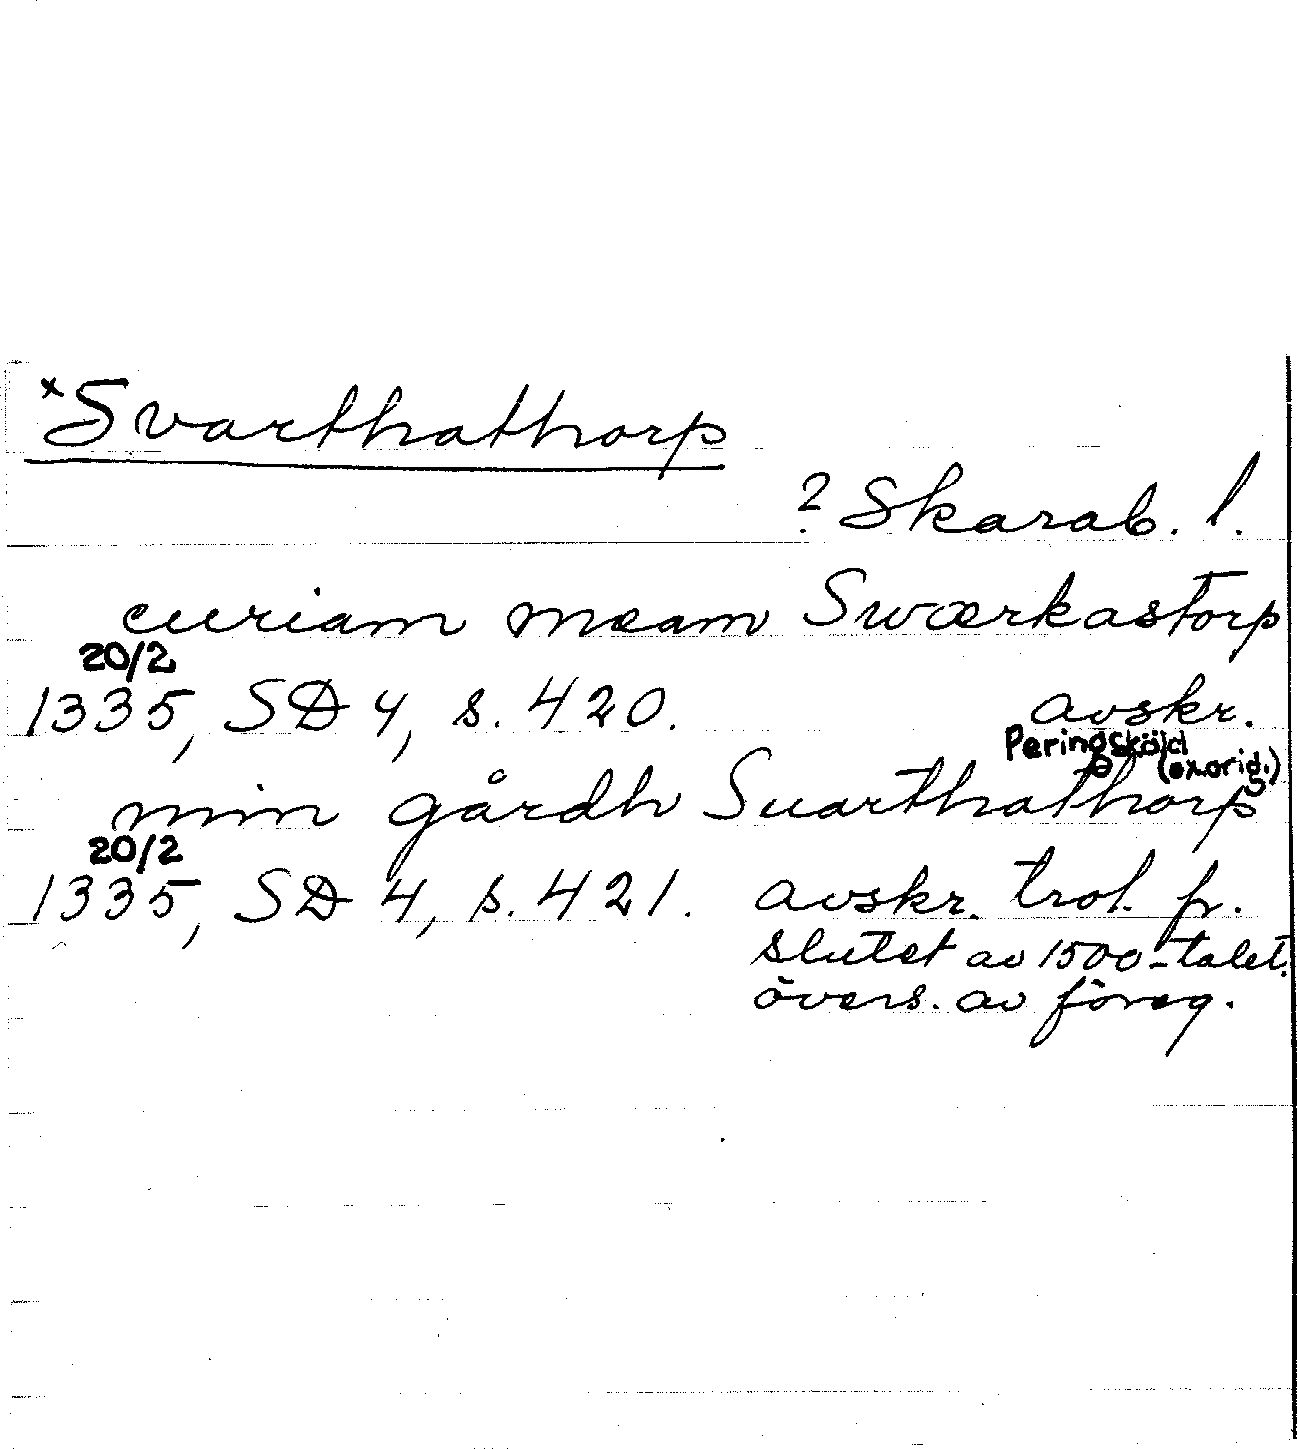 ×Svarthathorp
? Skarab. l.
curiam meam Swærkastorp
20/2
1335, SD 4, s. 420. avskr.
Peringsköld
(ex.orig.)
min gårdh Suarthathorp
20/2
1335, SD 4, s. 421. avskr. trol. fr.
slutet av 1500-talet.
övers. av föreg.